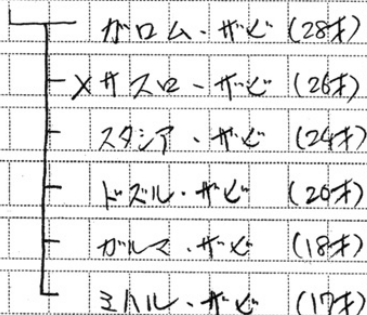 ガロム・ザビ (28才)
×サスロ・ザビ (26才)
スタシア・ザビ (24才)
ドズル・ザビ (20才)
ガルマ・ザビ (18才)
ミハル・ザビ (17才)